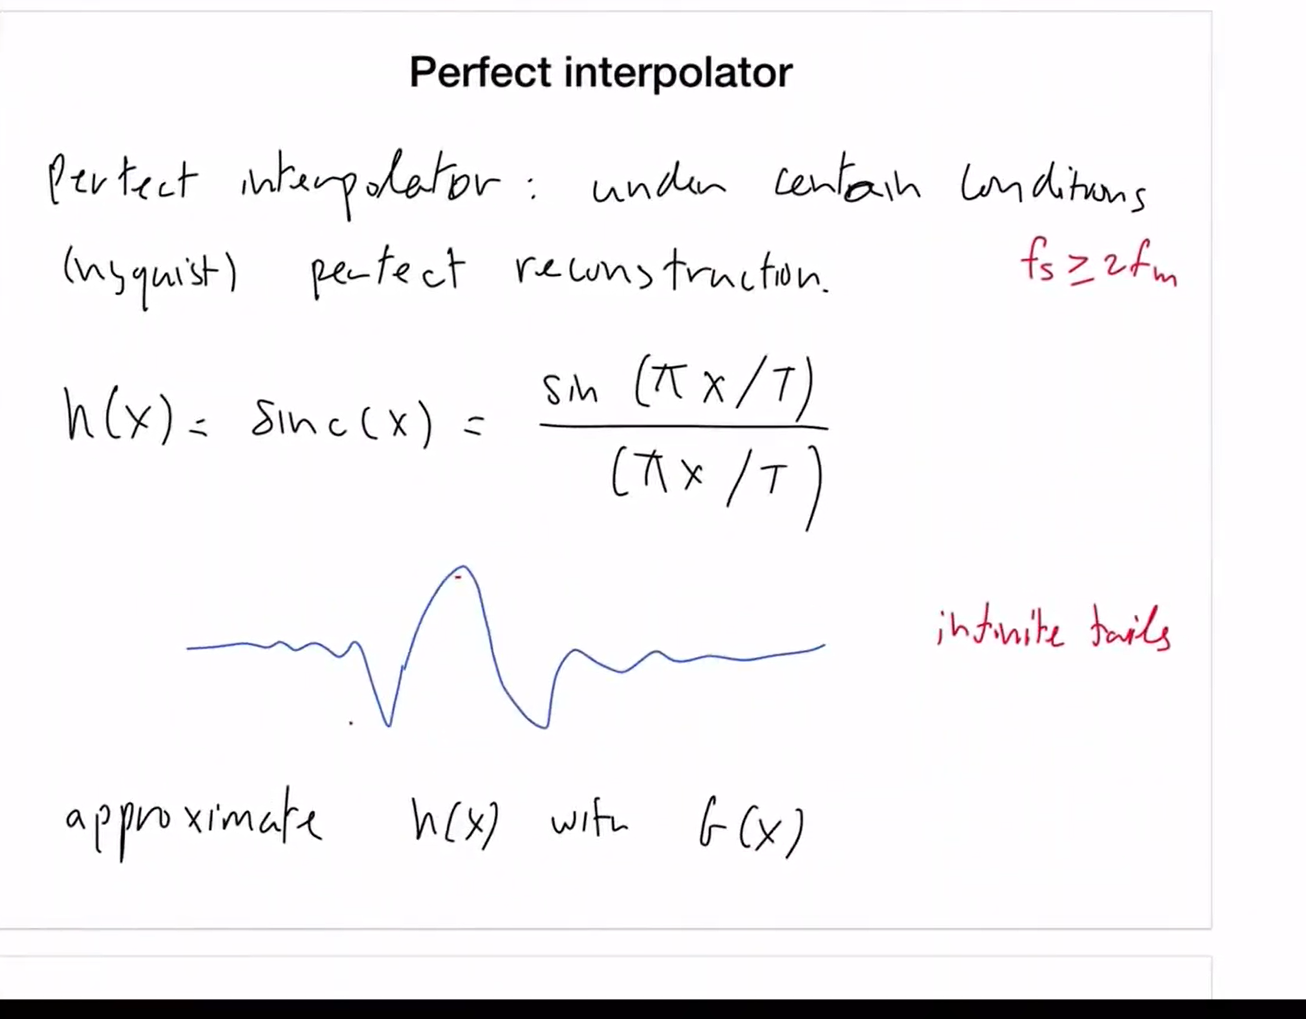 Perfect interpolator
Perfect interpolator : under certain conditions
(nyquist) perfect reconstruction. fs ≥ 2fm
h(x) = sinc(x) = sin (πx/T) / (πx/T)
infinite tails
approximate h(x) with G(x)